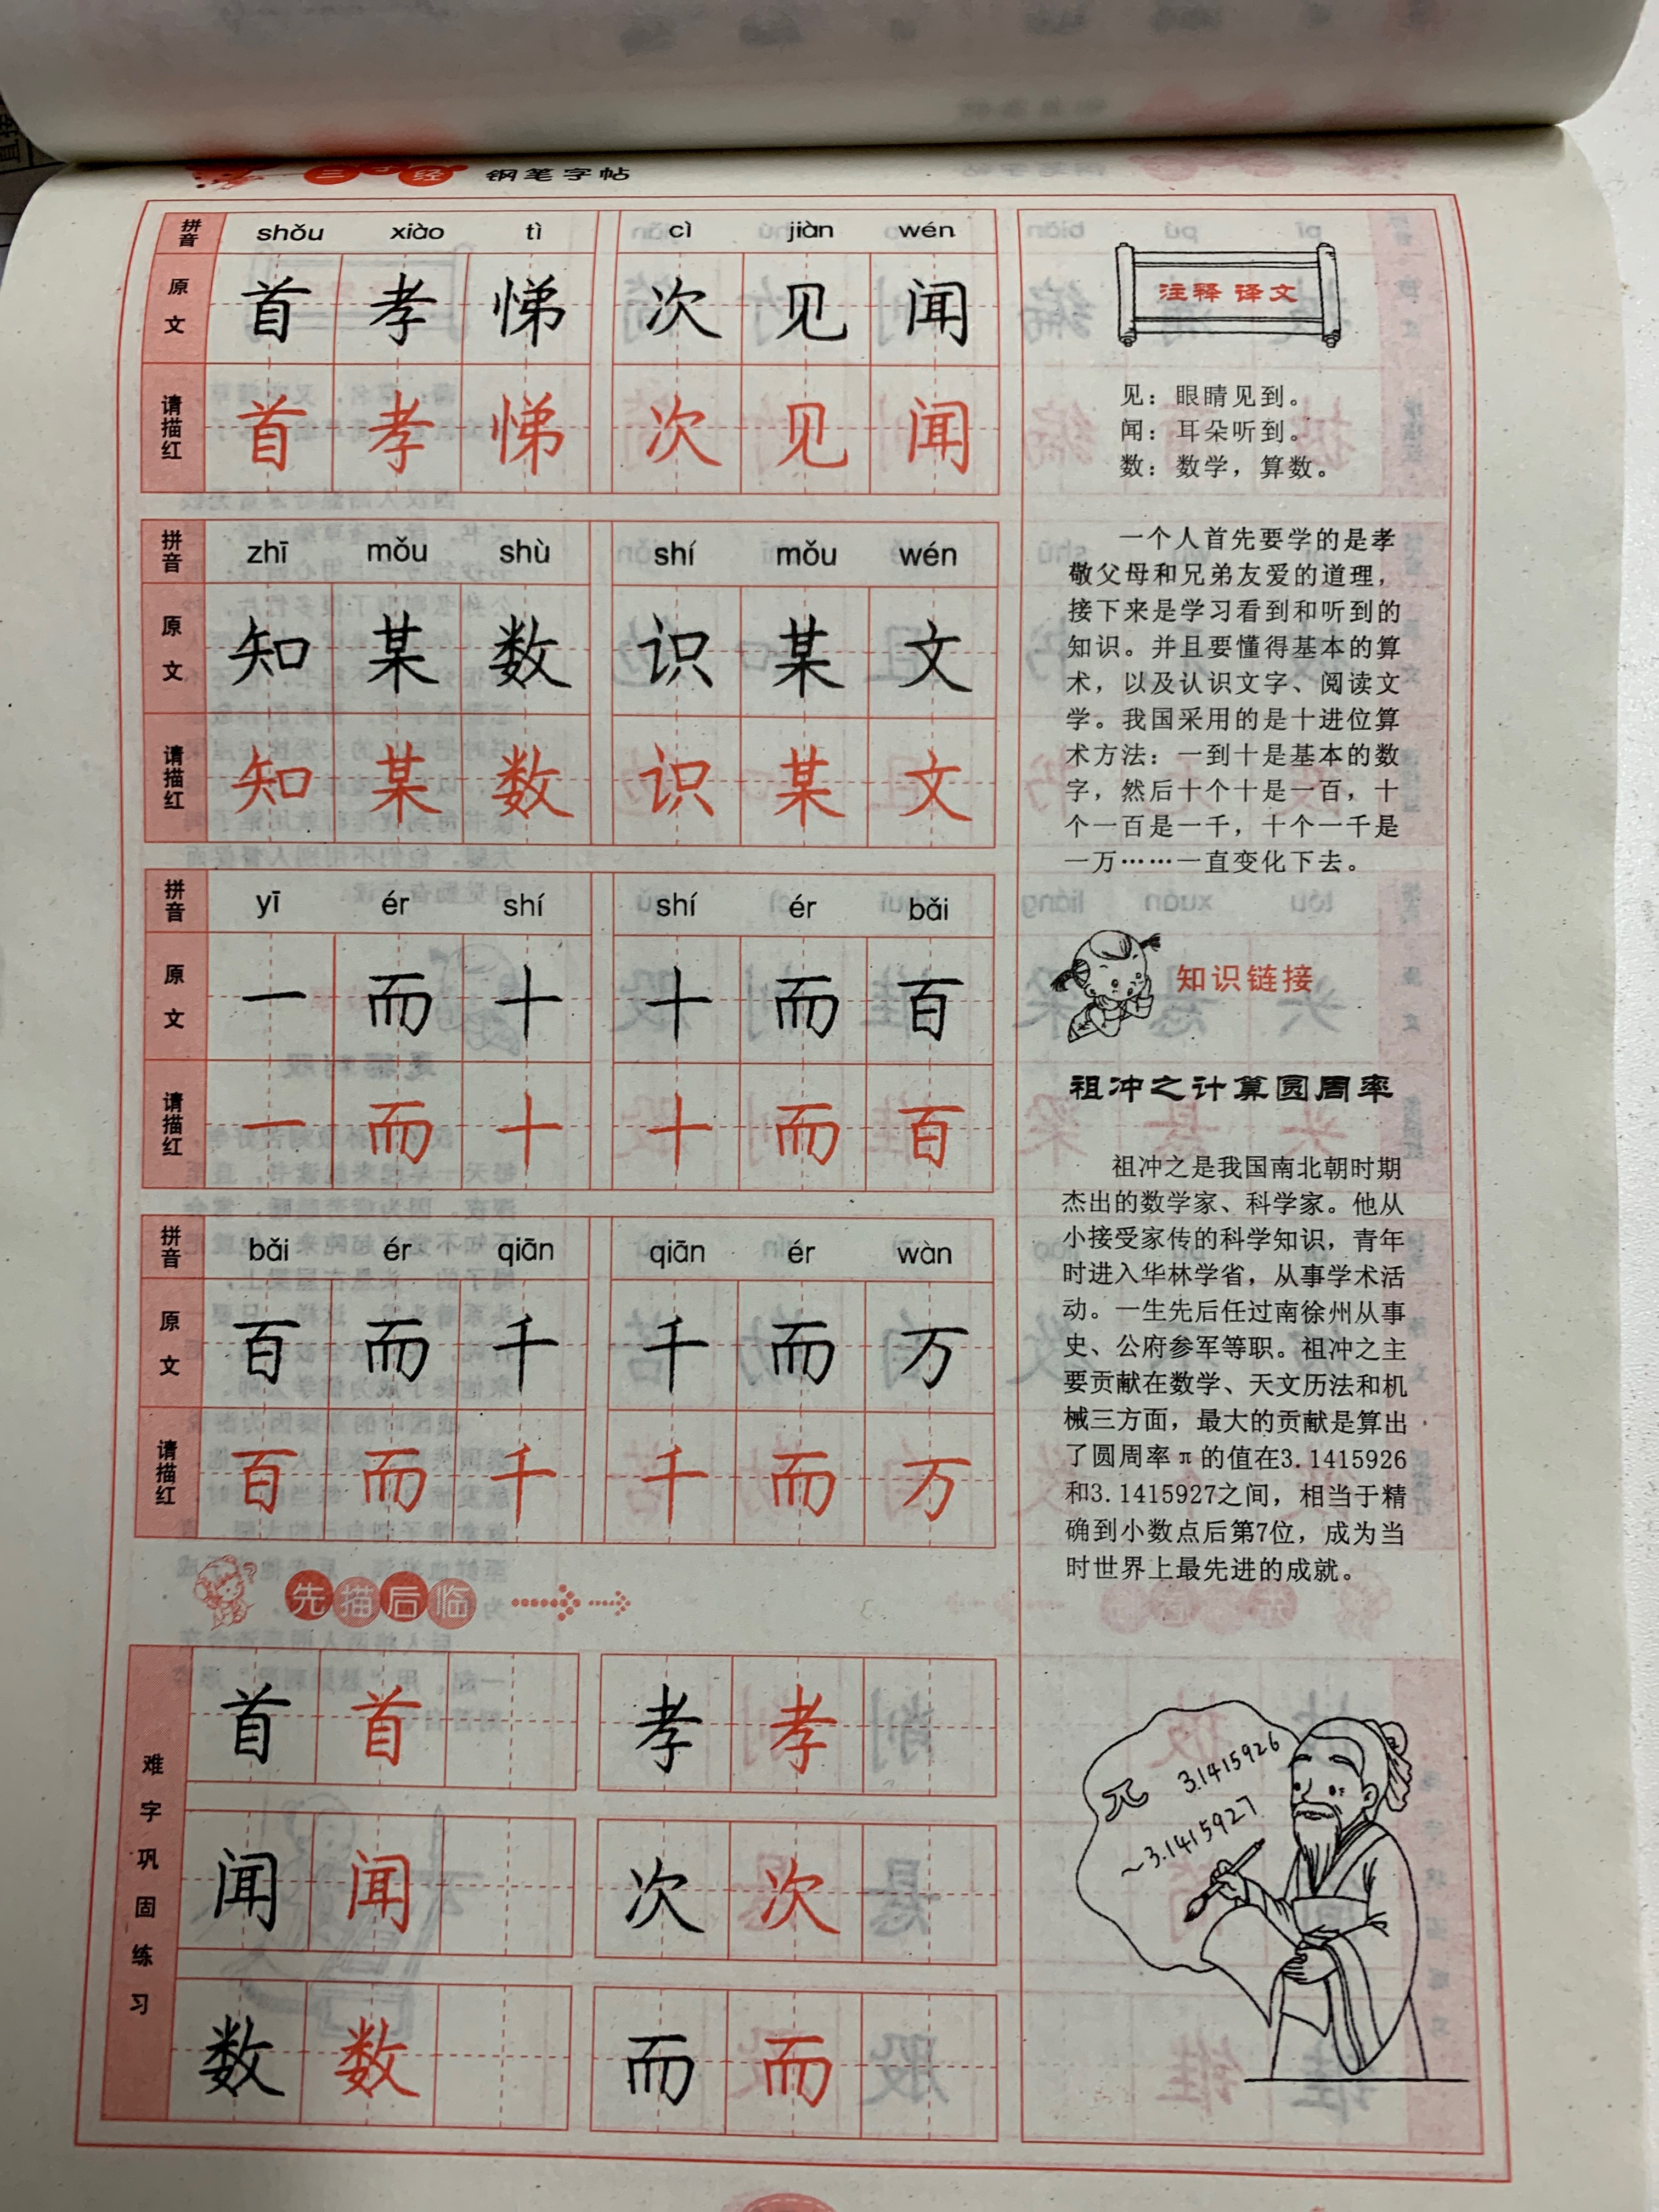 三字经 钢笔字帖
拼音 shǒu xiào tì cì jiàn wén
原文 首 孝 悌 次 见 闻
请描红 首 孝 悌 次 见 闻
拼音 zhī mǒu shù shí mǒu wén
原文 知 某 数 识 某 文
请描红 知 某 数 识 某 文
拼音 yī ér shí shí ér bǎi
原文 一 而 十 十 而 百
请描红 一 而 十 十 而 百
拼音 bǎi ér qiān qiān ér wàn
原文 百 而 千 千 而 万
请描红 百 而 千 千 而 万
先描后临
难字巩固练习
首 首 孝 孝
闻 闻 次 次
数 数 而 而
注释 译文
见：眼睛见到。
闻：耳朵听到。
数：数学，算数。
一个人首先要学的是孝
敬父母和兄弟友爱的道理，
接下来是学习看到和听到的
知识。并且要懂得基本的算
术，以及认识文字、阅读文
学。我国采用的是十进位算
术方法：一到十是基本的数
字，然后十个十是一百，十
个一百是一千，十个一千是
一万……一直变化下去。
知识链接
祖冲之计算圆周率
祖冲之是我国南北朝时期
杰出的数学家、科学家。他从
小接受家传的科学知识，青年
时进入华林学省，从事学术活
动。一生先后任过南徐州从事
史、公府参军等职。祖冲之主
要贡献在数学、天文历法和机
械三方面，最大的贡献是算出
了圆周率π的值在3.1415926
和3.1415927之间，相当于精
确到小数点后第7位，成为当
时世界上最先进的成就。
π 3.1415926
~3.1415927